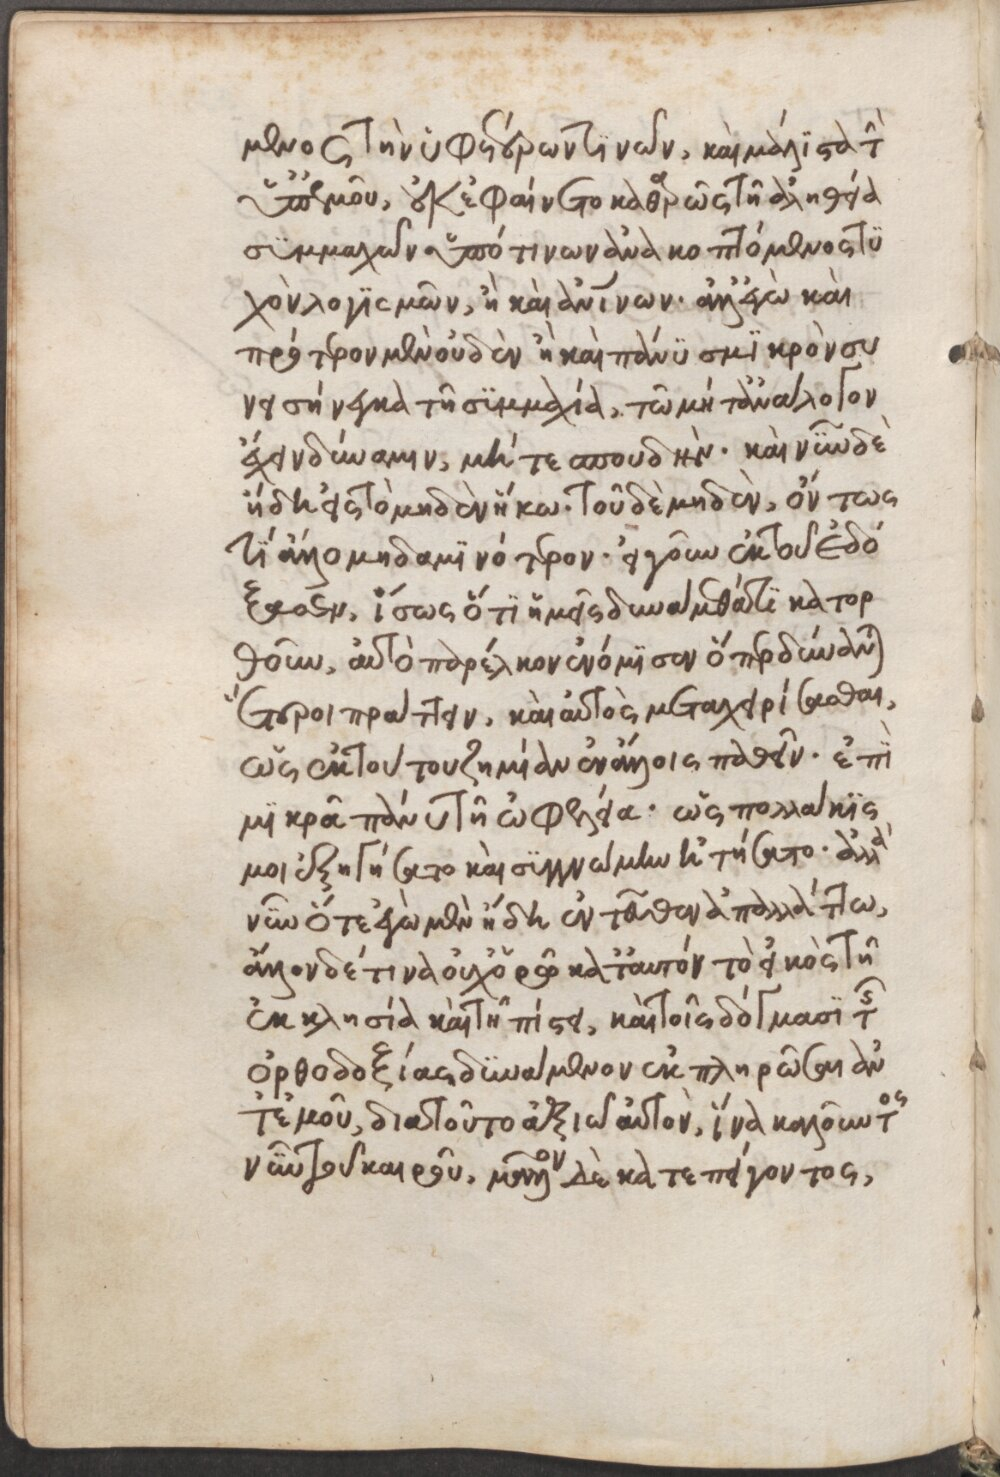 μενος τὴν ὑφ' ἑτέρων τινῶν, καὶ μάλιστα τ
ὑπ' ἐμοῦ, οὐκ ἐφαίνετο καθαρῶς τῆ ἀληθεία
συμμαχῶν ὑπό τινων ἀνακοπτόμενος τυ
χὸν λογισμῶν, ἢ καὶ ἀνῶν. ἀλλ' ἐγὼ καὶ
πρότερον μὲν οὐδὲν ἢ καὶ πάνυ σμικρὸν συ
νεισήνεγκα τῆ συμμαχία, τῶ μήτ' ἀνάλογον
ἔχειν δύναμιν, μήτε σπουδὴν. καὶ νῦν δὲ
ἤδη εἰς τὸ μηδὲν ἥκω. τοῦ δὲ μηδὲν, ὄντως
τί ἄλλο μηδαμινότερον. εἰ γοῦν ἐκτοῦ ἐδό
ξεν, ἴσως ὅτι ἡμεῖς δυνάμεθά τι κατορ
θοῦν, αὐτὸ παρέλκον ἐνόμισεν ὅπερ δύναν
ἕτεροι πράττειν, καὶ αὐτὸς μεταχειρίσασθαι,
ὡς ἐκ τούτου ζημίαν ἐν ἄλλοις παθεῖν. ἐπὶ
μικρᾶ πάνυ τῆ ὠφελεία. ὡς πολλάκις
μοι ἐξηγήσατο καὶ συγγνώμην ἠτήσατο. ἀλλὰ
νῦν ὅτε ἐγὼ μὲν ἤδη ἐντεῦθεν ἀπαλλάττω,
ἄλλον δέ τινα οὐχ ὁρῶ κατ' αὐτόν τὸ εἰκὸς τῆ
ἐκκλησία καὶ τῆ πίστει, καὶ τοῖς δόγμασι τῆς
ὀρθοδοξίας δυνάμενον ἐκπληρῶσαι ἀν
τ' ἐμοῦ, διατοῦτο ἀξιῶ αὐτὸν, ἵνα καλοῦντος
νῦν τοῦ καιροῦ, μᾶλλον δὲ κατεπείγοντος,